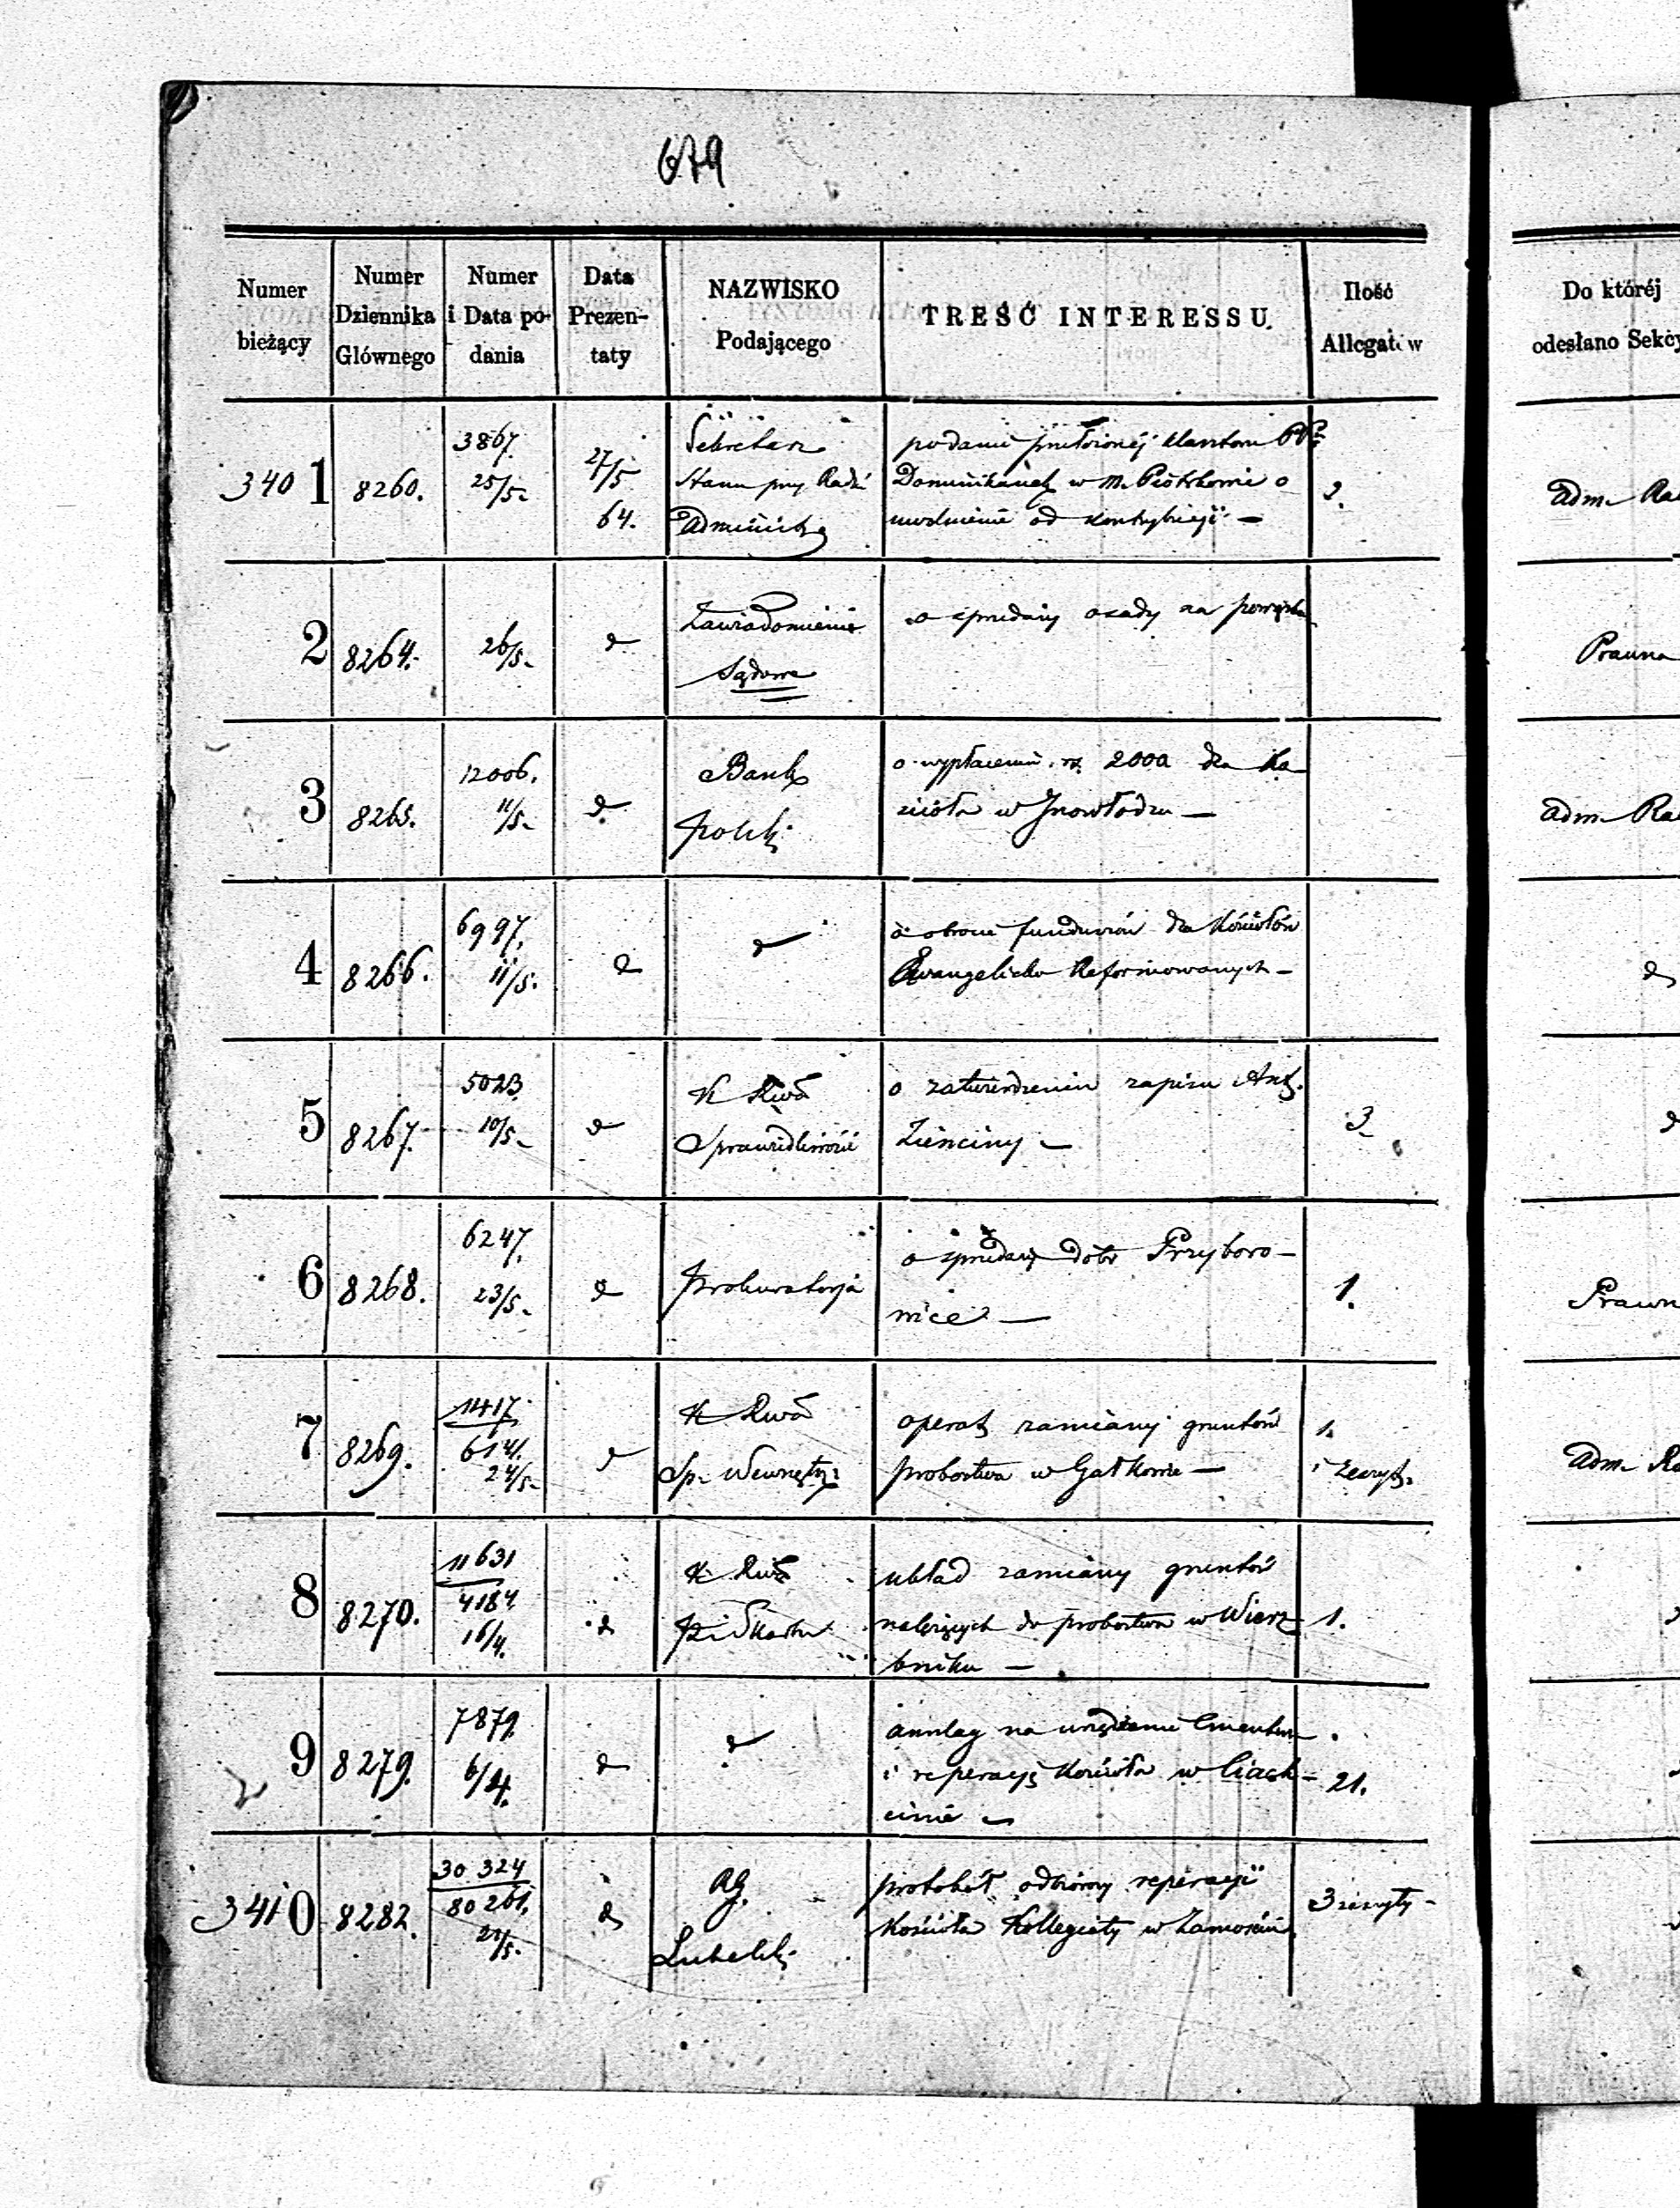 679
Numer bieżący
Numer Dziennika Głównego
Numer i Data podania
Data Prezentaty
NAZWISKO Podającego
TREŚĆ INTERESSU.
Ilość Allegatów
Do któréj odesłano Sekcy
3401
8260.
3867.
25/5.
27/5
64.
Sekretarz
Stanu przy Radzie
Administr
podanie przełożonéj klasztoru PP
Dominikanek w M. Piotrkowie o
uwolnienie od kontrybucyi —
2.
Adm. Ra
2
8264.
26/5.
d
Zawiadomienie
Sądowe
o sprzedaży osady na
Prawna
3
8265.
12006.
11/5.
d
Bank
Polski
o wypłacenie rs. 2000 dla Ko
ścioła w Inowłodzu —
Adm. Ra
4
8266.
6997.
11/5.
d
d
o obrocie funduszów dla Kościołów
Ewangelicko Reformowanych —
d
5
8267.
5023.
10/5.
d
K Rwa
Sprawiedliwości
o zatwierdzeniu zapisu Ant.
3
d
6
8268.
6247.
23/5.
d
Prokuratorja
o sprzedaży dóbr Przyboro-
wice —
1.
Prawn
7
8269.
1417.
6141.
24/5.
d
K Rwa
Sp. Wewnętrz:
operat zamiany gruntów
probostwa w Gałkowie —
1.
i zeszyt.
Adm. Ra
8
8270.
11631
4184.
16/4.
d
K Rwa
P. i Skarbu
układ zamiany gruntów
należących do probostwa w Wierz
bniku —
1.
9
8279.
7879.
6/4.
d
d
anszlag na urządzenie Cmentarza
i reperacyę Kościoła w Ciach-
cinie —
21.
3410
8282.
30324
80261.
21/5.
d
RG.
Lubelski
protokół odbiorczy reperacyi
Kościoła Kollegiaty w Zamościu
3 zeszyty —